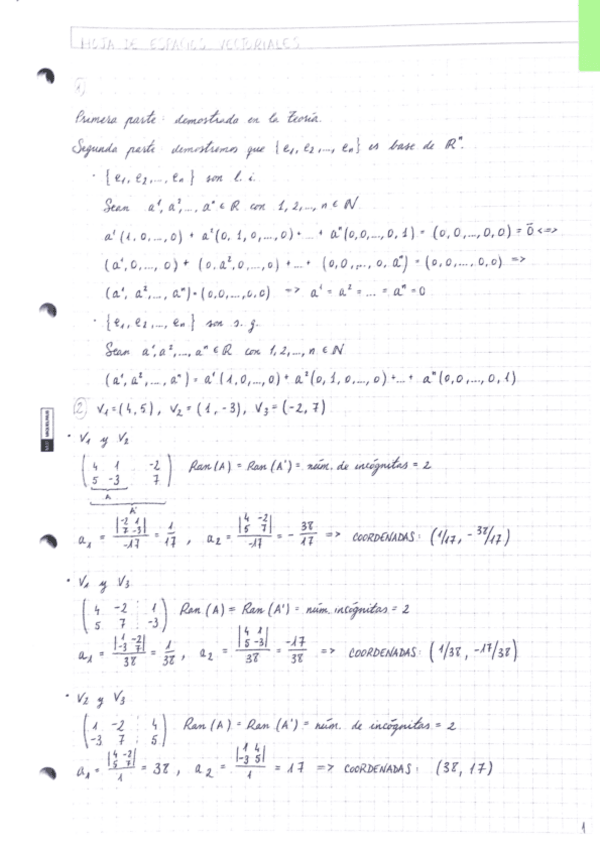 HOJA DE ESPACIOS VECTORIALES
1)
Primera parte: demostrada en la Teoría.
Segunda parte: demostremos que {e₁, e₂, ..., eₙ} es base de Rⁿ.
· {e₁, e₂, ..., eₙ} son l. i.
Sean a¹, a², ..., aⁿ ∈ R con 1, 2, ..., n ∈ N
a¹(1, 0, ..., 0) + a²(0, 1, 0, ..., 0) + ... + aⁿ(0, 0, ..., 0, 1) = (0, 0, ..., 0, 0) = 0⃗ <=>
(a¹, 0, ..., 0) + (0, a², 0, ..., 0) + ... + (0, 0, ..., 0, aⁿ) = (0, 0, ..., 0, 0) =>
(a¹, a², ..., aⁿ) = (0, 0, ..., 0, 0) => a¹ = a² = ... = aⁿ = 0
· {e₁, e₂, ..., eₙ} son s. g.
Sean a¹, a², ..., aⁿ ∈ R con 1, 2, ..., n ∈ N
(a¹, a², ..., aⁿ) = a¹(1, 0, ..., 0) + a²(0, 1, 0, ..., 0) + ... + aⁿ(0, 0, ..., 0, 1)
2) V₁ = (4, 5), V₂ = (1, -3), V₃ = (-2, 7)
· V₁ y V₂
(4 1 -2
5 -3 7) Ran(A) = Ran(A') = núm. de incógnitas = 2
A
A'
a₁ = |-2 1; 7 -3| / -17 = 1/17, a₂ = |4 -2; 5 7| / -17 = - 38/17 => COORDENADAS: (1/17, -38/17)
· V₁ y V₃
(4 -2 1
5 7 -3) Ran(A) = Ran(A') = núm. incógnitas = 2
a₁ = |1 -2; -3 7| / 38 = 1/38, a₂ = |4 1; 5 -3| / 38 = -17/38 => COORDENADAS: (1/38, -17/38)
· V₂ y V₃
(1 -2 4
-3 7 5) Ran(A) = Ran(A') = núm. de incógnitas = 2
a₁ = |4 -2; 5 7| / 1 = 38, a₂ = |1 4; -3 5| / 1 = 17 => COORDENADAS: (38, 17)
1